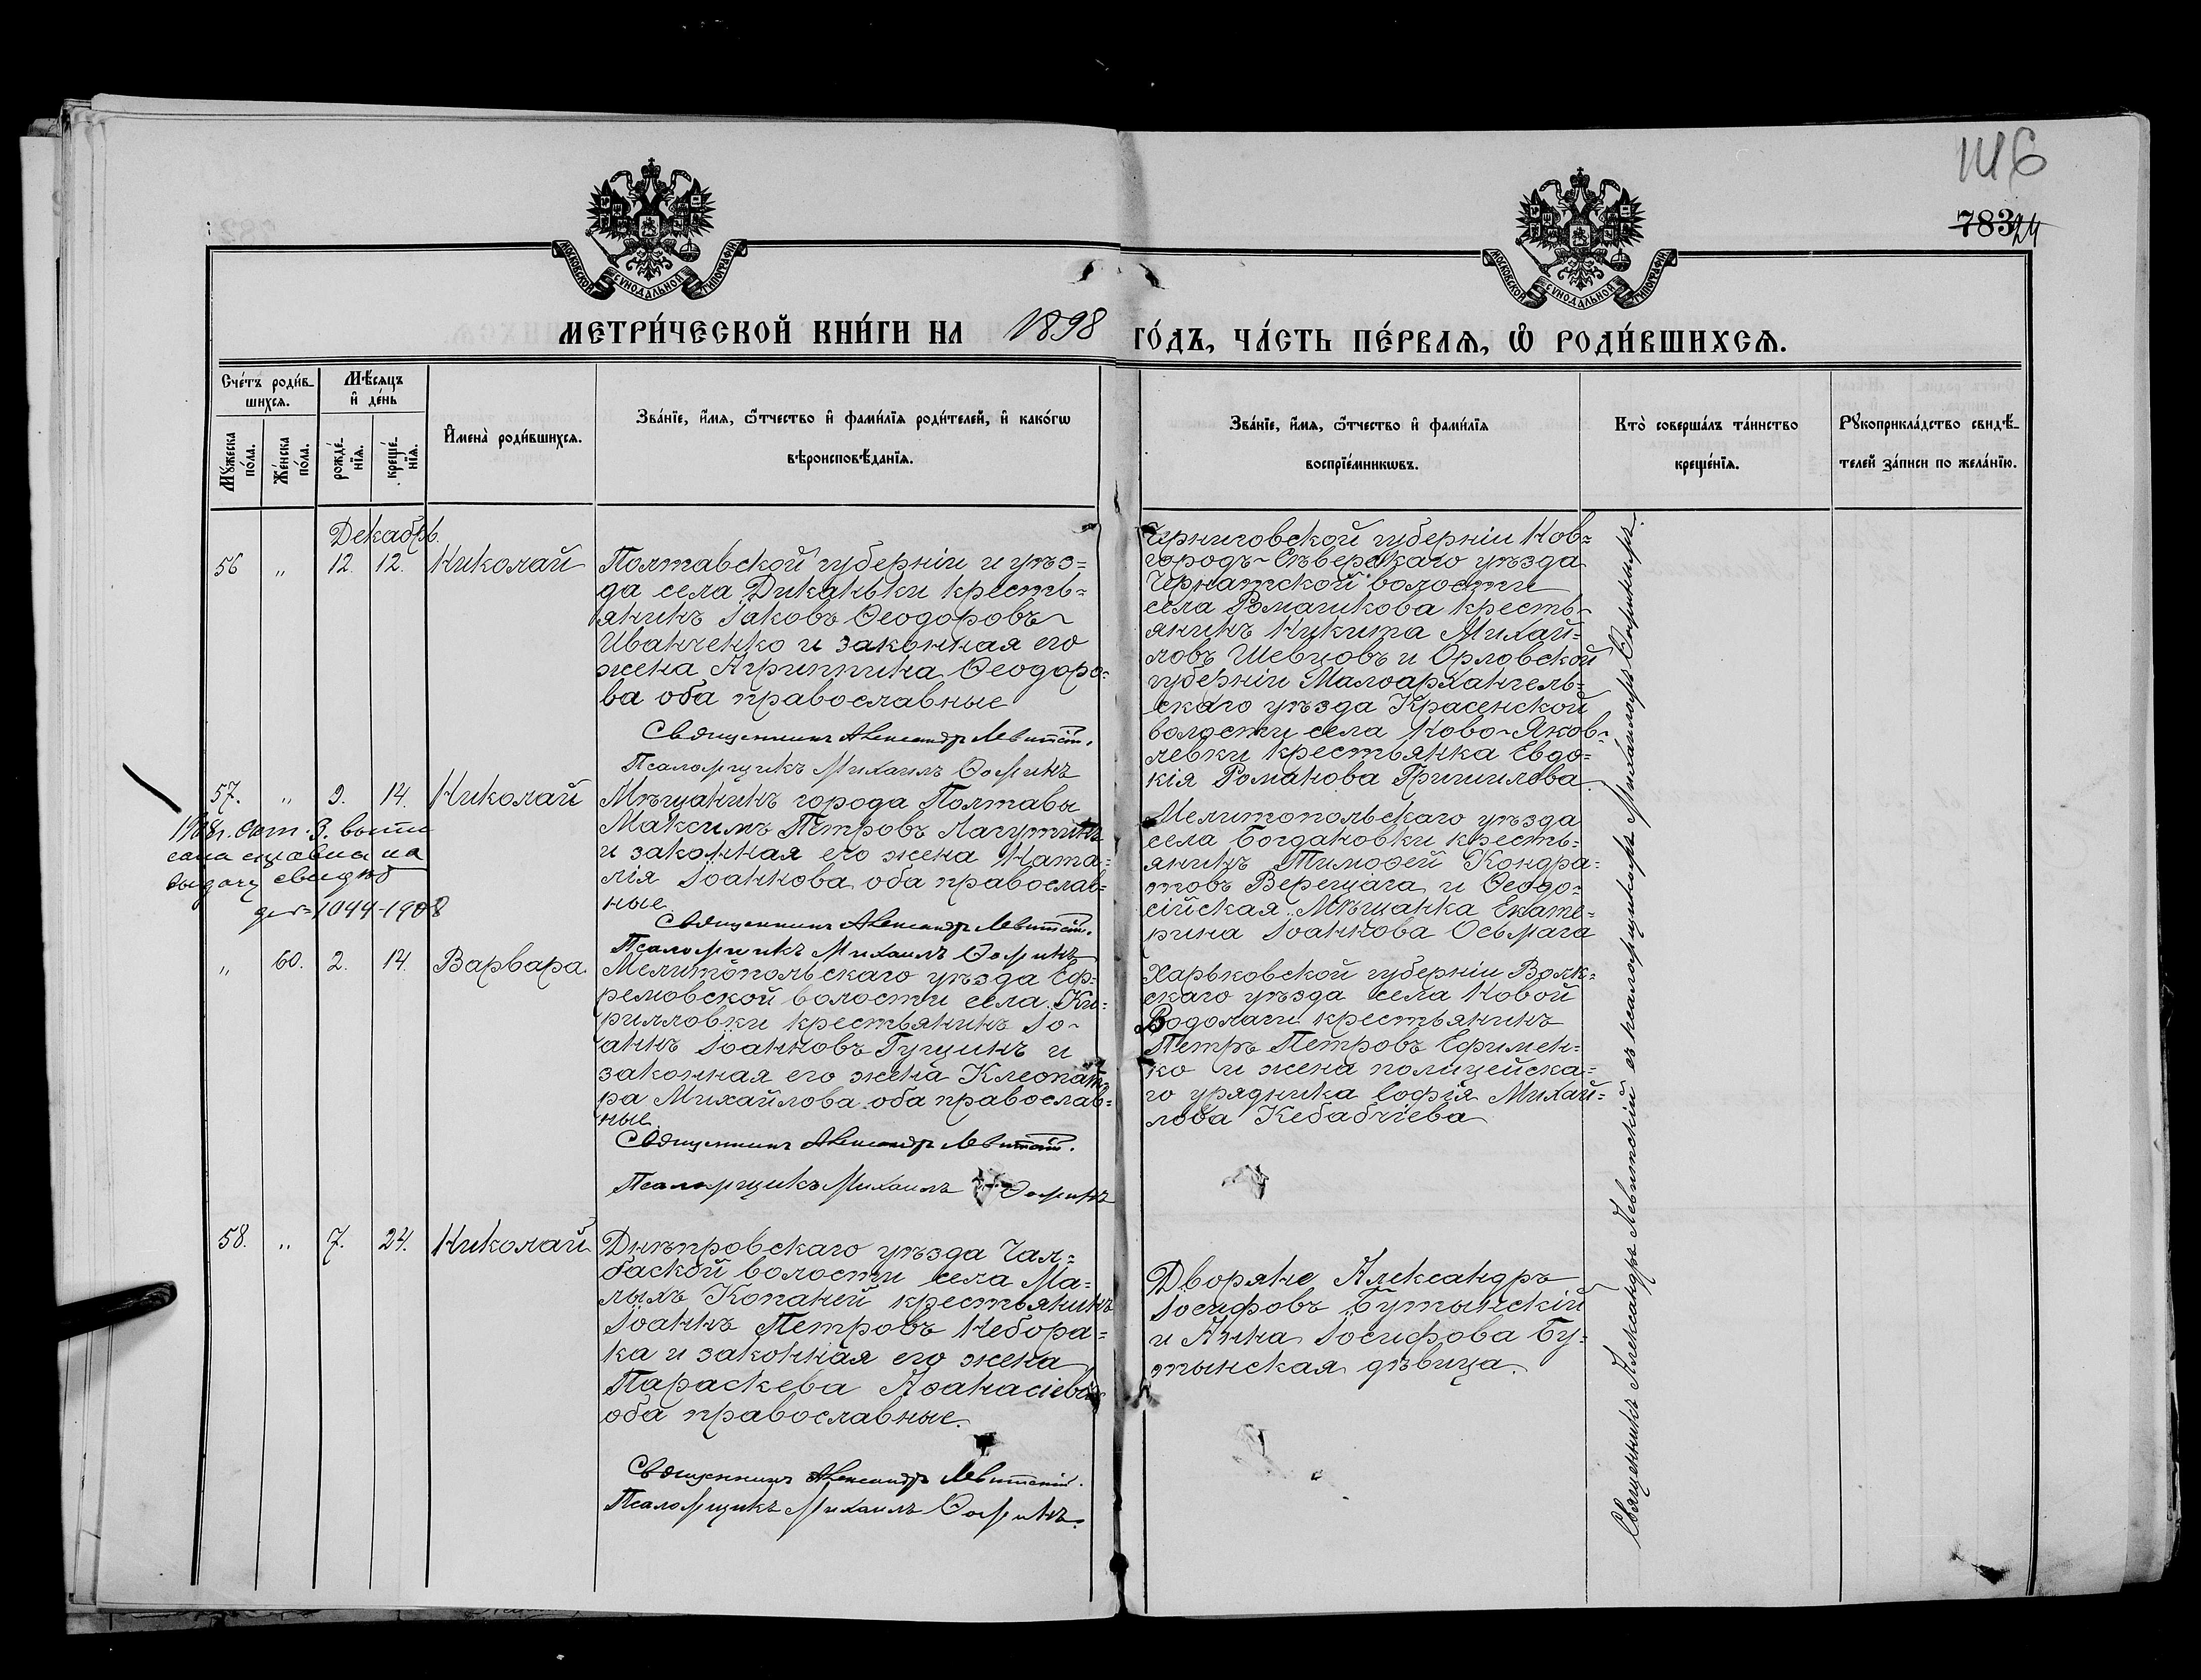 1116
783 24
МОСКОВСКОЙ СѴНОДАЛЬНОЙ ТИПОГРАФІИ
МОСКОВСКОЙ СѴНОДАЛЬНОЙ ТИПОГРАФІИ
МЕТРИ́ЧЕСКОЙ КНИ́ГИ НА 1898 ГО́ДЪ, ЧА́СТЬ ПЕ́РВАѦ, Ѡ РОДИ́ВШИХСѦ.
Счéтъ роди́в-
шихсѧ.
Мꙋжеска по́ла.
Же́нска по́ла.
Мѣ́сяцъ и҆ де́нь
рожде́-нїѧ.
креще́-нїѧ.
И҆мена̀ роди́вшихсѧ.
Зва́нїе, и҆́мѧ, ѻ҆́тчество и҆ фами́лїѧ роди́телей, и҆ како́гѡ
вѣроисповѣ́данїѧ.
Зва́нїе, и҆́мѧ, ѻ҆́тчество и҆ фами́лїѧ
воспрїе́мникѡвъ.
Кто̀ соверша́лъ та́инство
креще́нїѧ.
Рꙋкоприкла́дство свидѣ́-
телей за́писи по жела́нїю.
Декабрь.
56 " 12. 12. Николай
Полтавской губерніи и уѣз=
да села Диканьки кресть=
янинъ Іаковъ Ѳеодоровъ
Иванченко и законная его
жена Агриппина Ѳеодоро=
ва оба православные
Священникъ Александръ Левитскій.
Псаломщикъ Михаилъ Ѳоминъ
Черниговской губерніи Нов=
городъ-Сѣверскаго уѣзда
Чернатской волости
села Ромашкова кресть-
янинъ Никита Михай=
ловъ Шевцовъ и Орловской
губерніи Малоархангель=
скаго уѣзда Красенской
волости села Ново-Яков-
левки крестьянка Евдо=
кія Романова Гришилова.
57. " 9. 14. Николай
Мѣщанинъ города Полтавы
Максимъ Петровъ Лагутинъ
и законная его жена Ната=
лія Іоаннова оба православ=
ные
Священникъ Александръ Левитскій.
Псаломщикъ Михаилъ Ѳоминъ
1908 г. Окт. 3. выпи
сана справка на
выдачу свидѣт
1044-1908
Мелитопольскаго уѣзда
села Богдановки кресть=
янинъ Тимоѳей Кондра=
товъ Верещага и Ѳеодо=
сійская Мѣщанка Екате=
рина Іоаннова Осьмага
" 60. 2. 14. Варвара
Мелитопольскаго уѣзда Еф=
ремовской волости села Ки=
рилловки крестьянинъ Іо-
аннъ Іоанновъ Гущинъ и
законная его жена Клеопат
ра Михайлова оба православ=
ные.
Священникъ Александръ Левитскій.
Псаломщикъ Михаилъ Ѳоминъ
Харьковской губерніи Волк=
скаго уѣзда села Новой
Водолаги крестьянинъ
Петръ Петровъ Ефимен=
ко и жена полицейска=
го урядника Софія Михай=
лова Кебабчіева
58. " 7. 24. Николай
Днѣпровскаго уѣзда Чал=
баской волости села Ма=
лыхъ Копаней крестьянинъ
Іоаннъ Петровъ Небора=
ка и законная его жена
Параскева Аѳанасіева
оба православные.
Священникъ Александръ Левитскій.
Псаломщикъ Михаилъ Ѳоминъ.
Дворяне Александръ
Іосифовъ Бутынскій
и Анна Іосифова Бу=
тынская дѣвица.
Священникъ Александръ Левитскій съ псаломщикомъ Михаиломъ Ѳоминымъ.